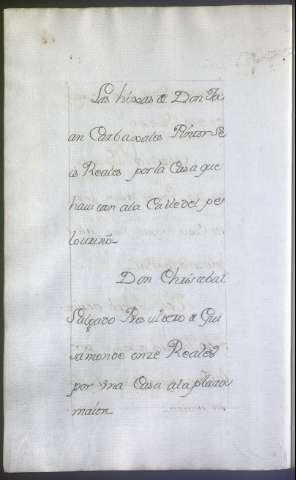 Las hixas de Don Ju
an Carbaxales Pintor Se
is Reales por la Casa que
hauitan a la Calle del pe
lourino
Don Christobal
Salgado Presuitero de Gui
samonde onze Reales
por vna Casa a la plaza
maior